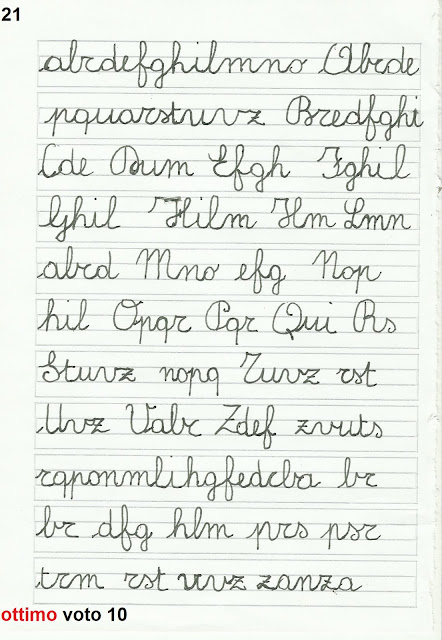 21
abcdefghilmno Abcde
pquarstuvz Bredfghi
Cde Dum Efgh Fghil
Ghil Hilm Hm Lmn
abcd Mno efg Nop
hil Opqr Pqr Qui Rs
Stuvz nopq Tuvz rst
Uvz Vabc Zdef zvuts
rqponmlihgfedcba br
br dfg hlm prs psr
trm rst uvz zanza
ottimo voto 10